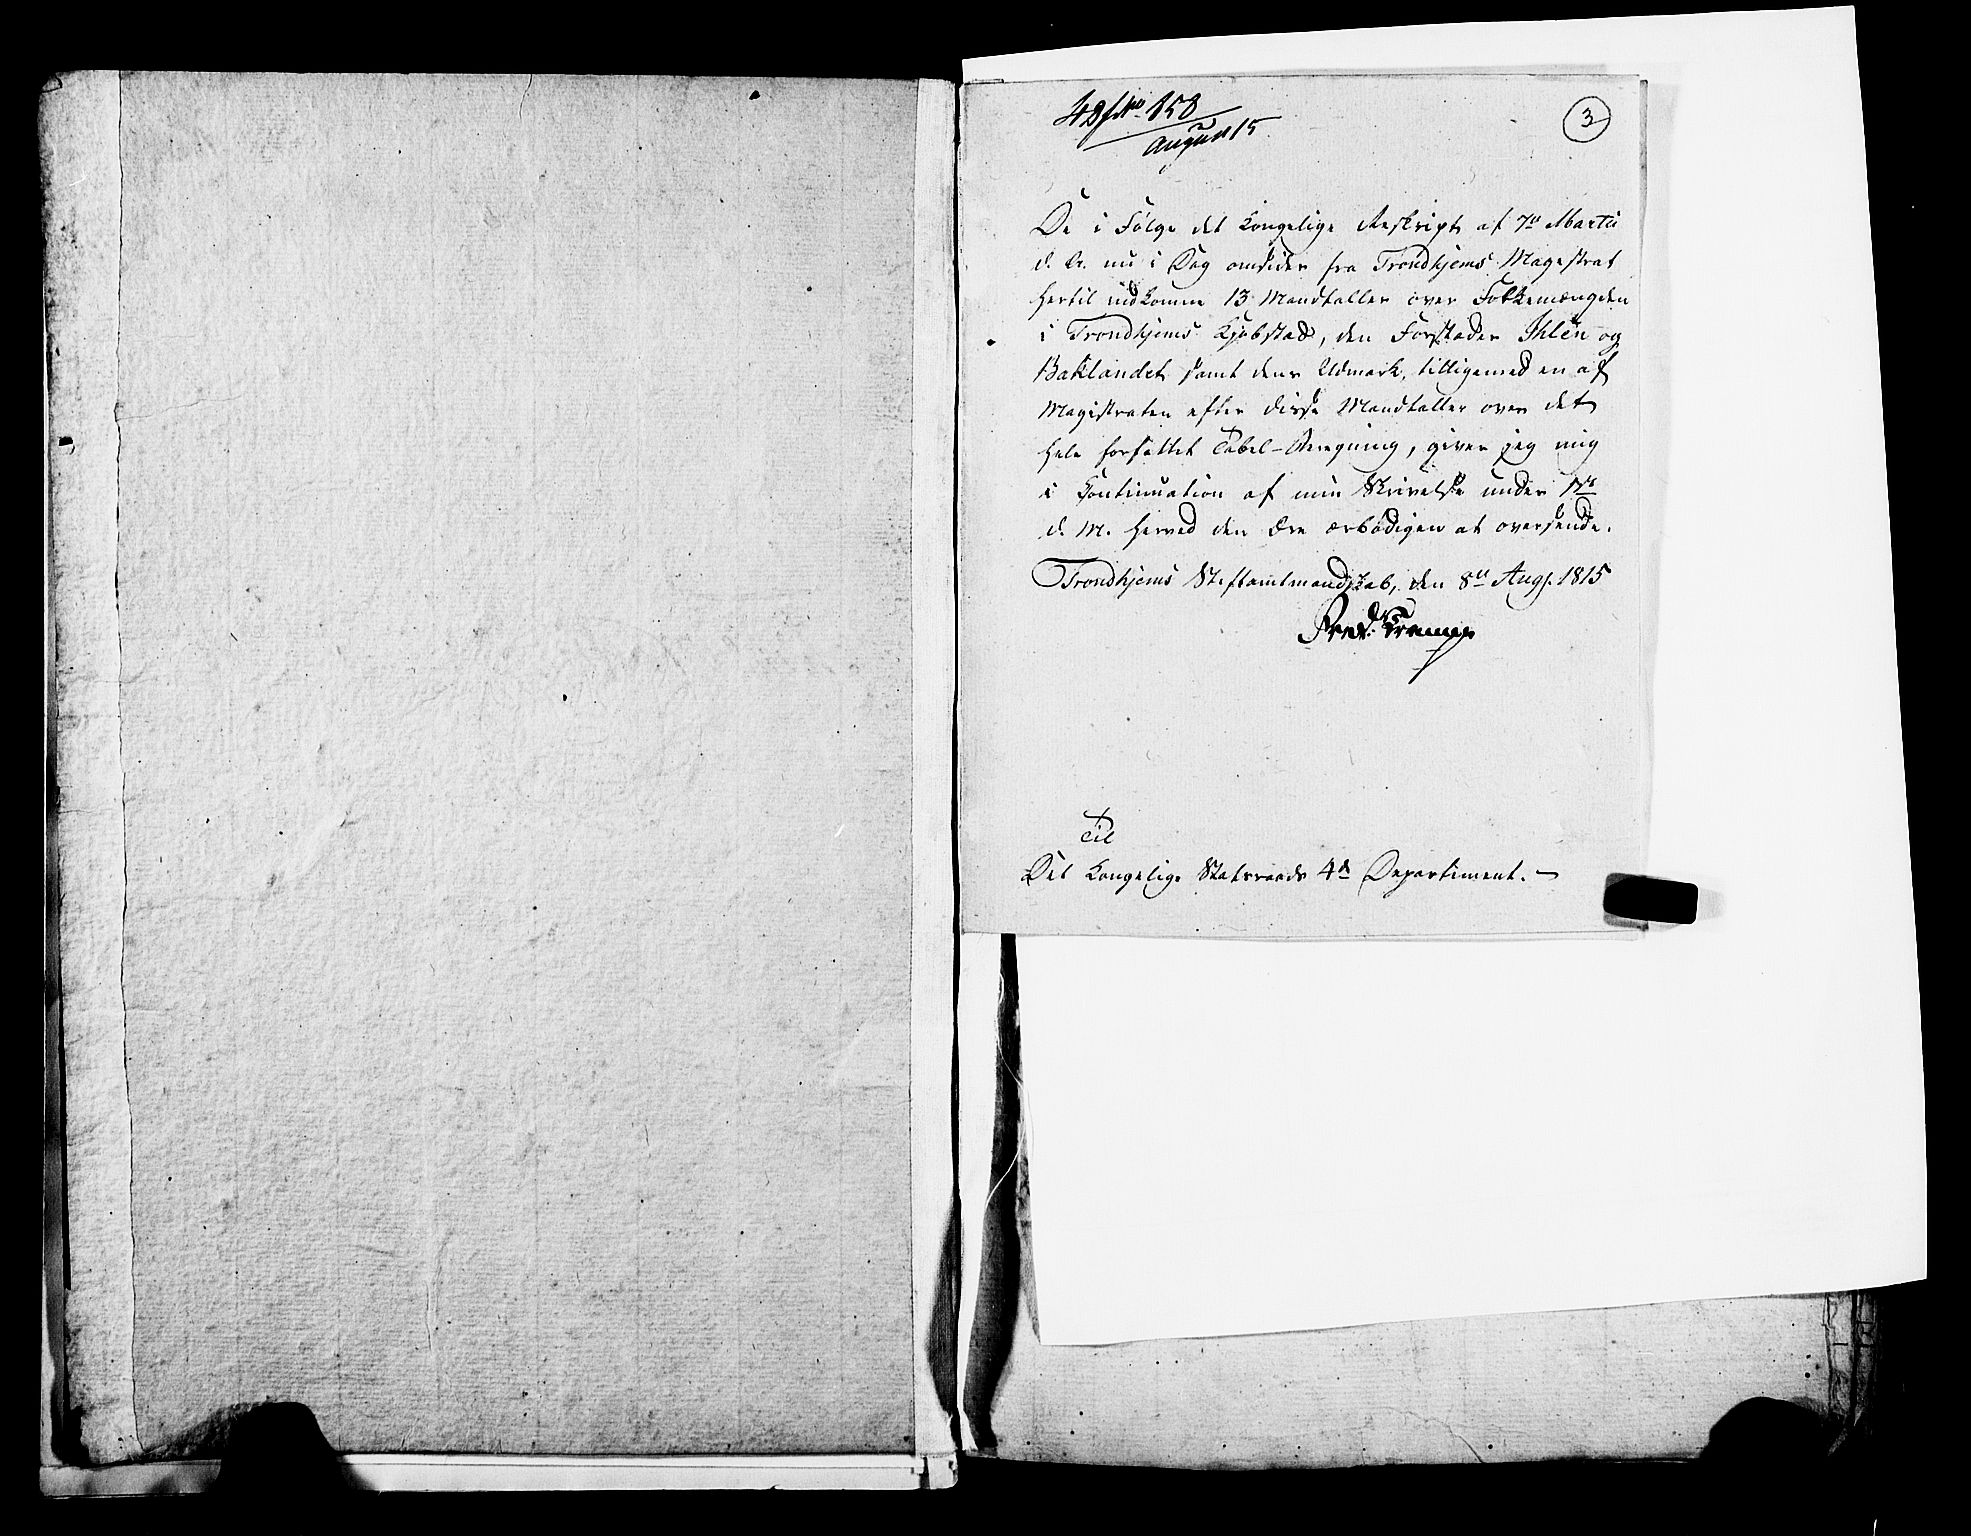 4 D No 858
August 15
3
De i Følge det kongelige Reskript af 7de Martii
d. A. nu i Dag omsider fra Trondhjems Magistrat
hertil indkomne 13 Mandtaller over Folkemængden
i Trondhjems Kjøbstad, den Forstæder Ihlen og
Baklandet samt dens Udmark, tilligemed en af
Magistraten efter disse Mandtaller over det
hele forfattet Tabel-Beregning, giver jeg mig
i Continuation af min Skrivelse under
d. M. herved den Ære ærbødigen at oversende.
Trondhjems Stiftamtmandskab, den 8de Aug. 1815
Fred. Trampe
Til
Det kongelige Statsraads 4de Departement.